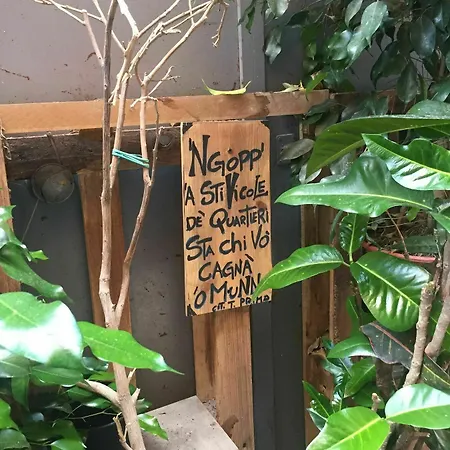 'NGOPP'
'A STI VICOLE
DÈ QUARTIERI
STA CHI VÒ
CAGNÀ
'O MUNN
CIT. T. PD. MB